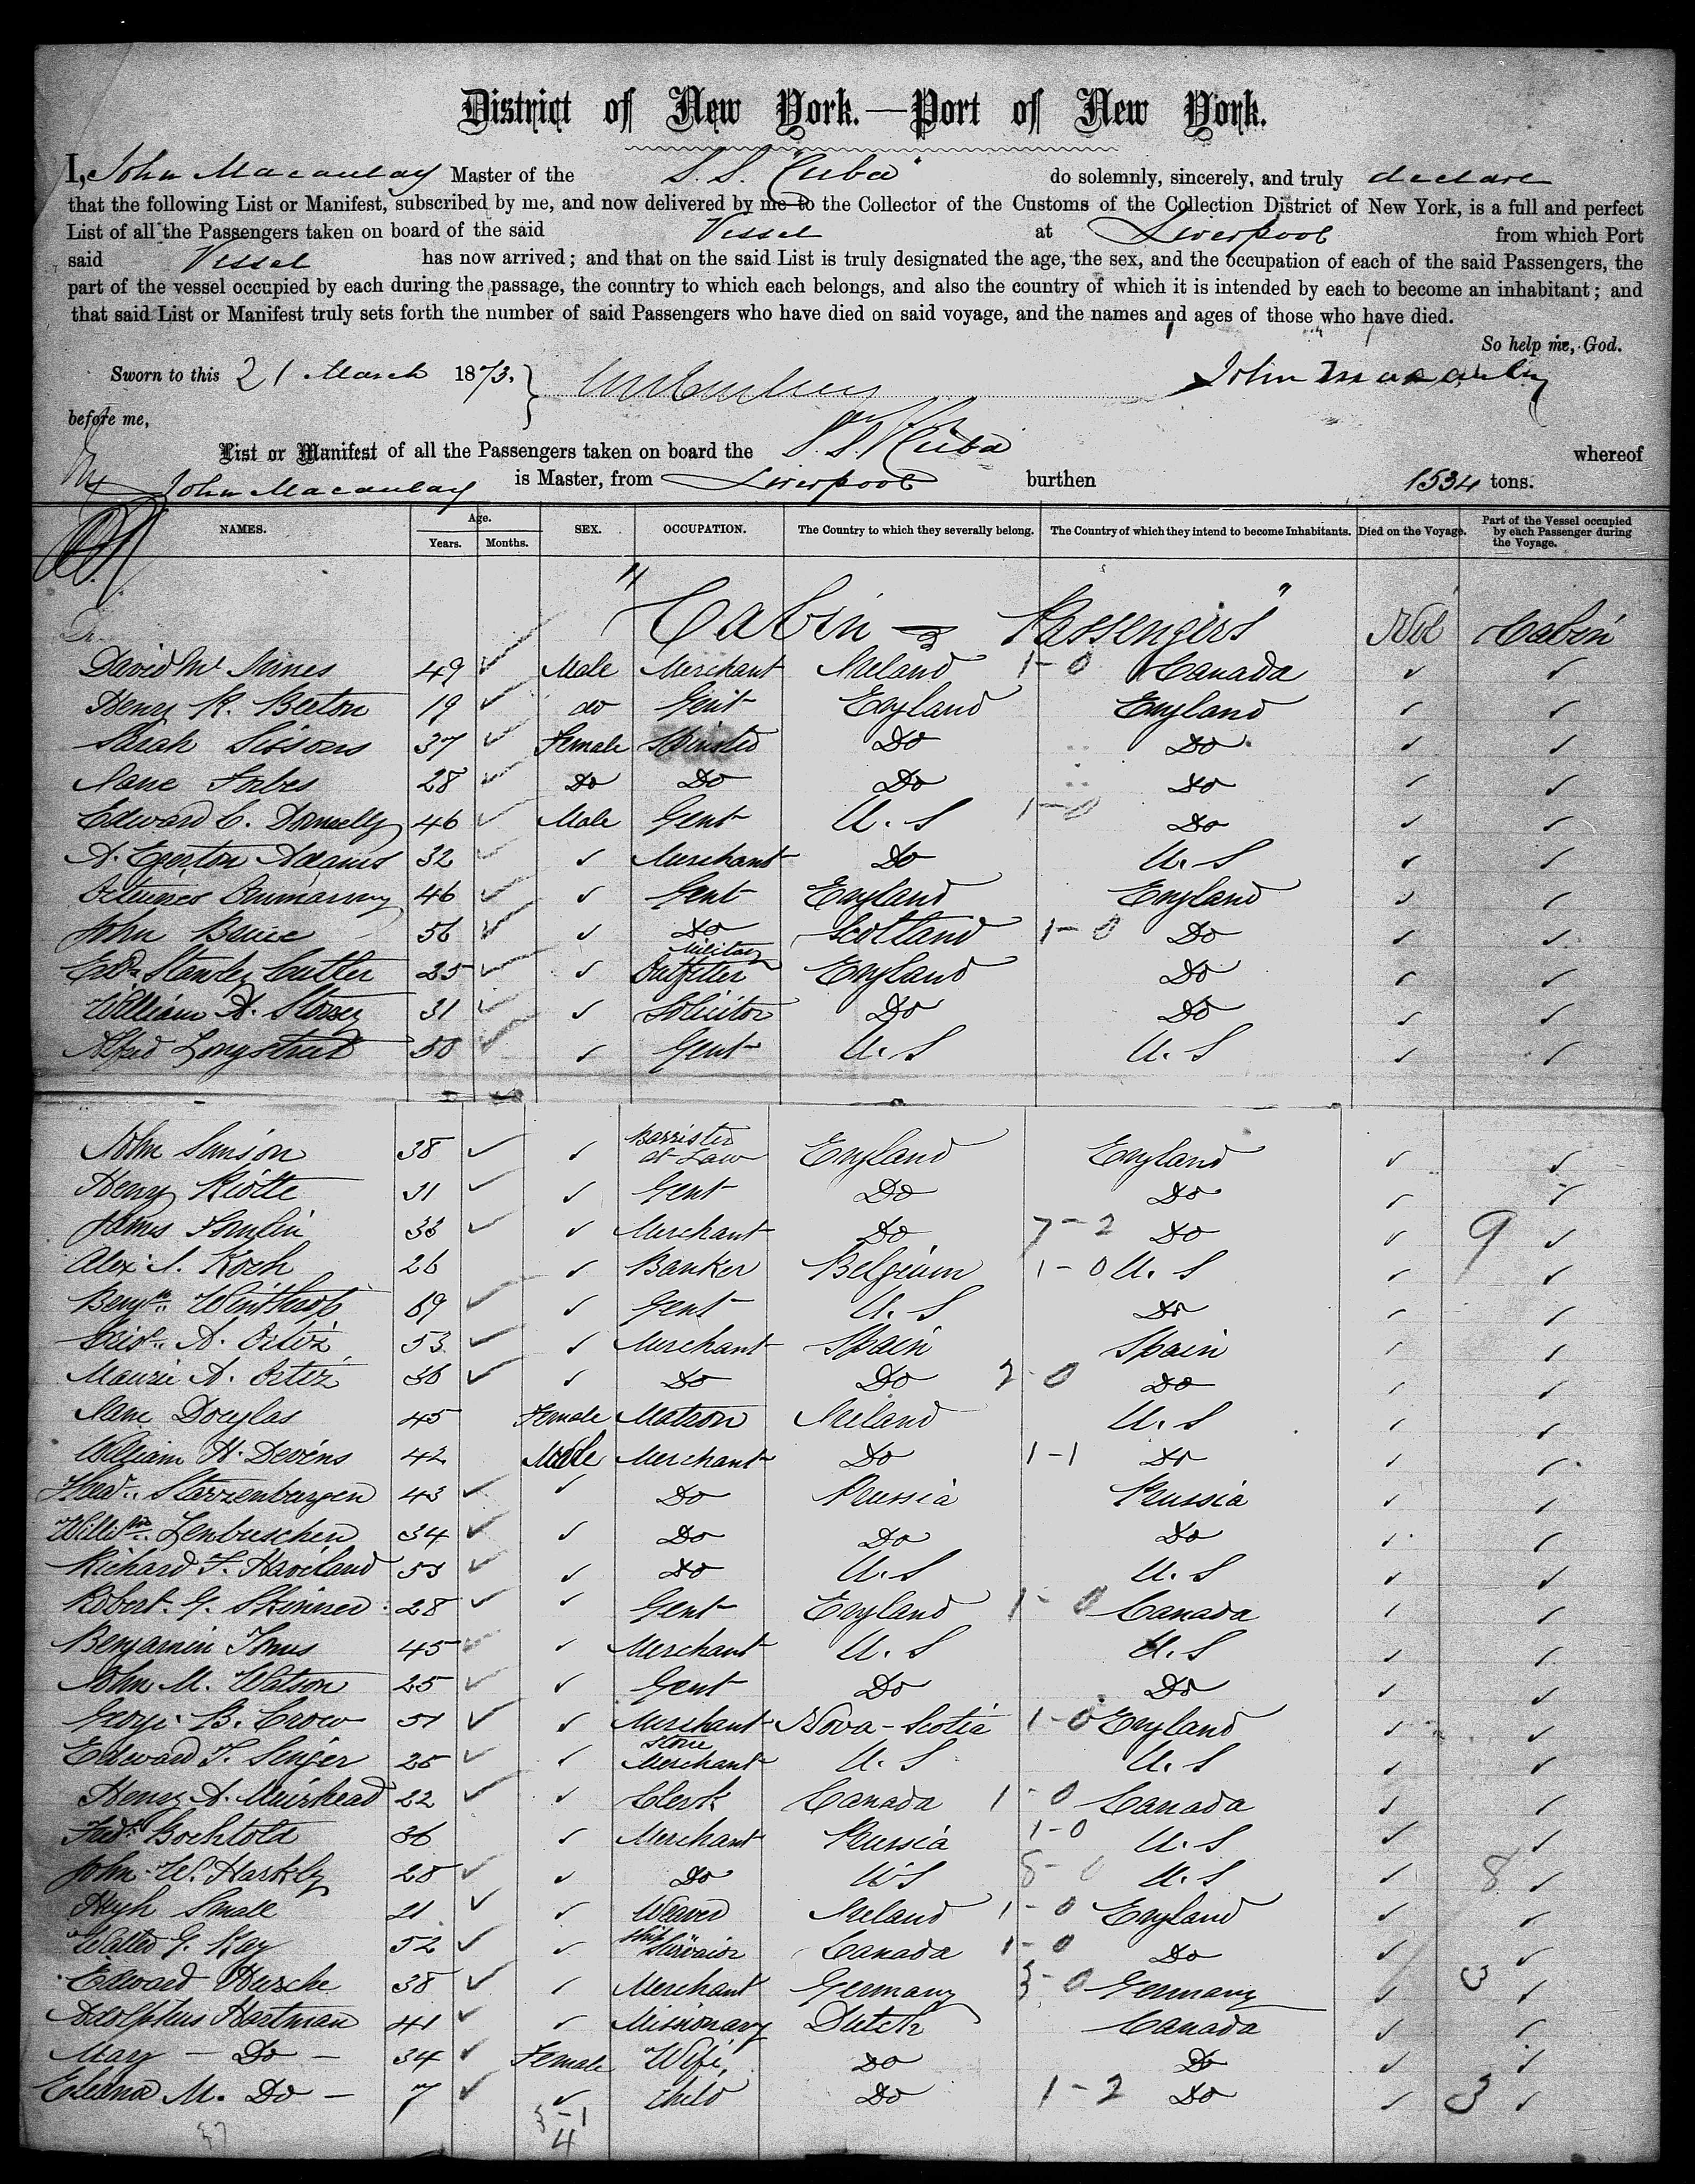 District of New York.—Port of New York.
I, John Macaulay Master of the S. S. "Cuba" do solemnly, sincerely, and truly declare
that the following List or Manifest, subscribed by me, and now delivered by me to the Collector of the Customs of the Collection District of New York, is a full and perfect
List of all the Passengers taken on board of the said Vessel at Liverpool from which Port
said Vessel has now arrived; and that on the said List is truly designated the age, the sex, and the occupation of each of the said Passengers, the
part of the vessel occupied by each during the passage, the country to which each belongs, and also the country of which it is intended by each to become an inhabitant; and
that said List or Manifest truly sets forth the number of said Passengers who have died on said voyage, and the names and ages of those who have died.
So help me, God.
Sworn to this 21 March 1873. John Macaulay
before me,
List or Manifest of all the Passengers taken on board the S. S. Cuba whereof
John Macaulay is Master, from Liverpool burthen 1534 tons.
NAMES. Age. Years. Months. SEX. OCCUPATION. The Country to which they severally belong. The Country of which they intend to become Inhabitants. Died on the Voyage. Part of the Vessel occupied by each Passenger during the Voyage.
"Cabin Passengers" Nil Cabin
David Mc Innes 49 Male Merchant Ireland 1-0 Canada
Henry R. Beeton 19 do Gent England England
Sarah Sissons 37 Female Spinster Do Do
Jane Forbes 28 Do Do Do Do
Edward C. Donnelly 46 Male Gent U. S 1-0 Do
A. Egerton Adams 32 Merchant Do U. S
46 Gent England England
John Bruce 56 Do Scotland 1-0 Do
Edwd Stanley Cutler 25 Military Outfitter England Do
William A. Storey 31 Solicitor Do Do
Alfred Longstreet 50 Gent U. S U. S
John Simson 38 Barrister at Law England England
Henry Riotte 31 Gent Do Do
James Tomlin 33 Merchant Do 7-2 Do 9
Alex J. Koch 26 Banker Belgium 1-0 U. S
Benjn. Winthrop 69 Gent U. S Do
A. Ortiz 53 Merchant Spain Spain
A. Ortiz 36 Do Do 2-0 Do
Jane Douglas 45 Female Matron Ireland U. S
William H. Devens 42 Male Merchant Do 1-1 Do
Starzenburgen 43 Do Prussia Prussia
Lenbuschen 34 Do Do Do
Richard F. Haviland 53 Do U. S U. S
Robert G. Skinner 28 Gent England 1-0 Canada
Benjamin Jones 45 Merchant U. S U. S
John M. Watson 25 Gent Do Do
George B. Crow 51 Merchant Nova-Scotia 1-0 England
Edward T. Singer 25 Stone Merchant U. S U. S
Henry A. Muirhead 22 Clerk Canada 1-0 Canada
Fredk Bochtold 36 Merchant Prussia 1-0 U. S
John W. Harkly 28 Do U S 8-0 U. S 8
Hugh Small 21 Weaver Ireland 1-0 England
Walter G. Kay 52 Ship Canada 1-0 Do
Edward Hesche 38 Merchant Germany 3-0 Germany 3
Adolphus Hartman 41 Missionary Dutch Canada
Mary - Do - 34 Female Wife Do Do
Eleana M. Do - 7 Child Do 1-2 Do 3
3-1
4